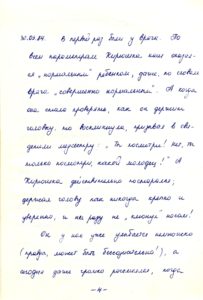 30.05.84. В первый раз были у врача. По
всем параметрам Кирюшка наш оказал-
ся „нормальным" ребенком, даже, по словам
врача „совершенно нормальным". А когда
она стала проверять, как он держит
головку, то воскликнула, призвав в сви-
детели медсестру: „Ты посмотри! Нет, ты
только посмотри, какой молодец!" А
Кирюшка действительно постарался,
держал голову как никогда крепко и
уверенно, и ни разу не „клюнул" носом!
Он у нас уже улыбается немножко
(правда, может быть бессознательно!), а
сегодня даже громко рассмеялся, когда
-4-